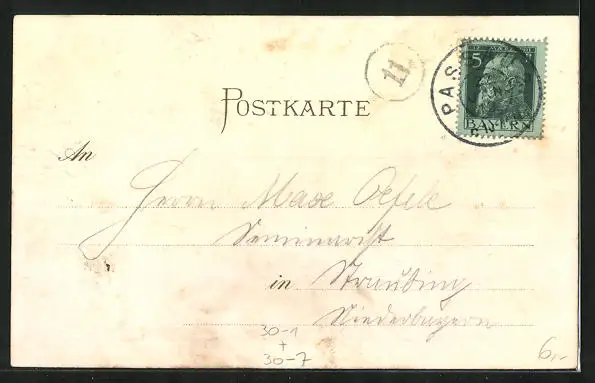 11
5
POSTKARTE
PAS
BAYERN
An
Herrn Max Oefele
Seminarist
in Straubing
Niederbayern
30-1
+
30-7
6,-